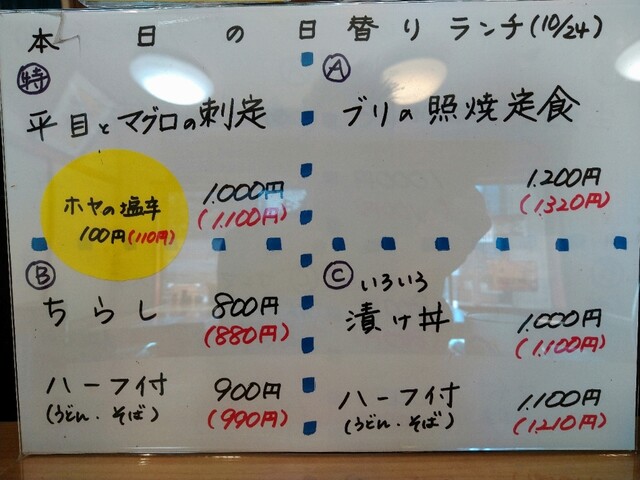 本日の日替りランチ(10/24)
特
平目とマグロの刺定
1.000円
(1.100円)
ホヤの塩辛
100円(110円)
A
ブリの照焼定食
1.200円
(1.320円)
B
ちらし 800円
(880円)
ハーフ付 900円
(うどん・そば) (990円)
C いろいろ
漬け丼 1.000円
(1.100円)
ハーフ付 1.100円
(うどん・そば) (1.210円)